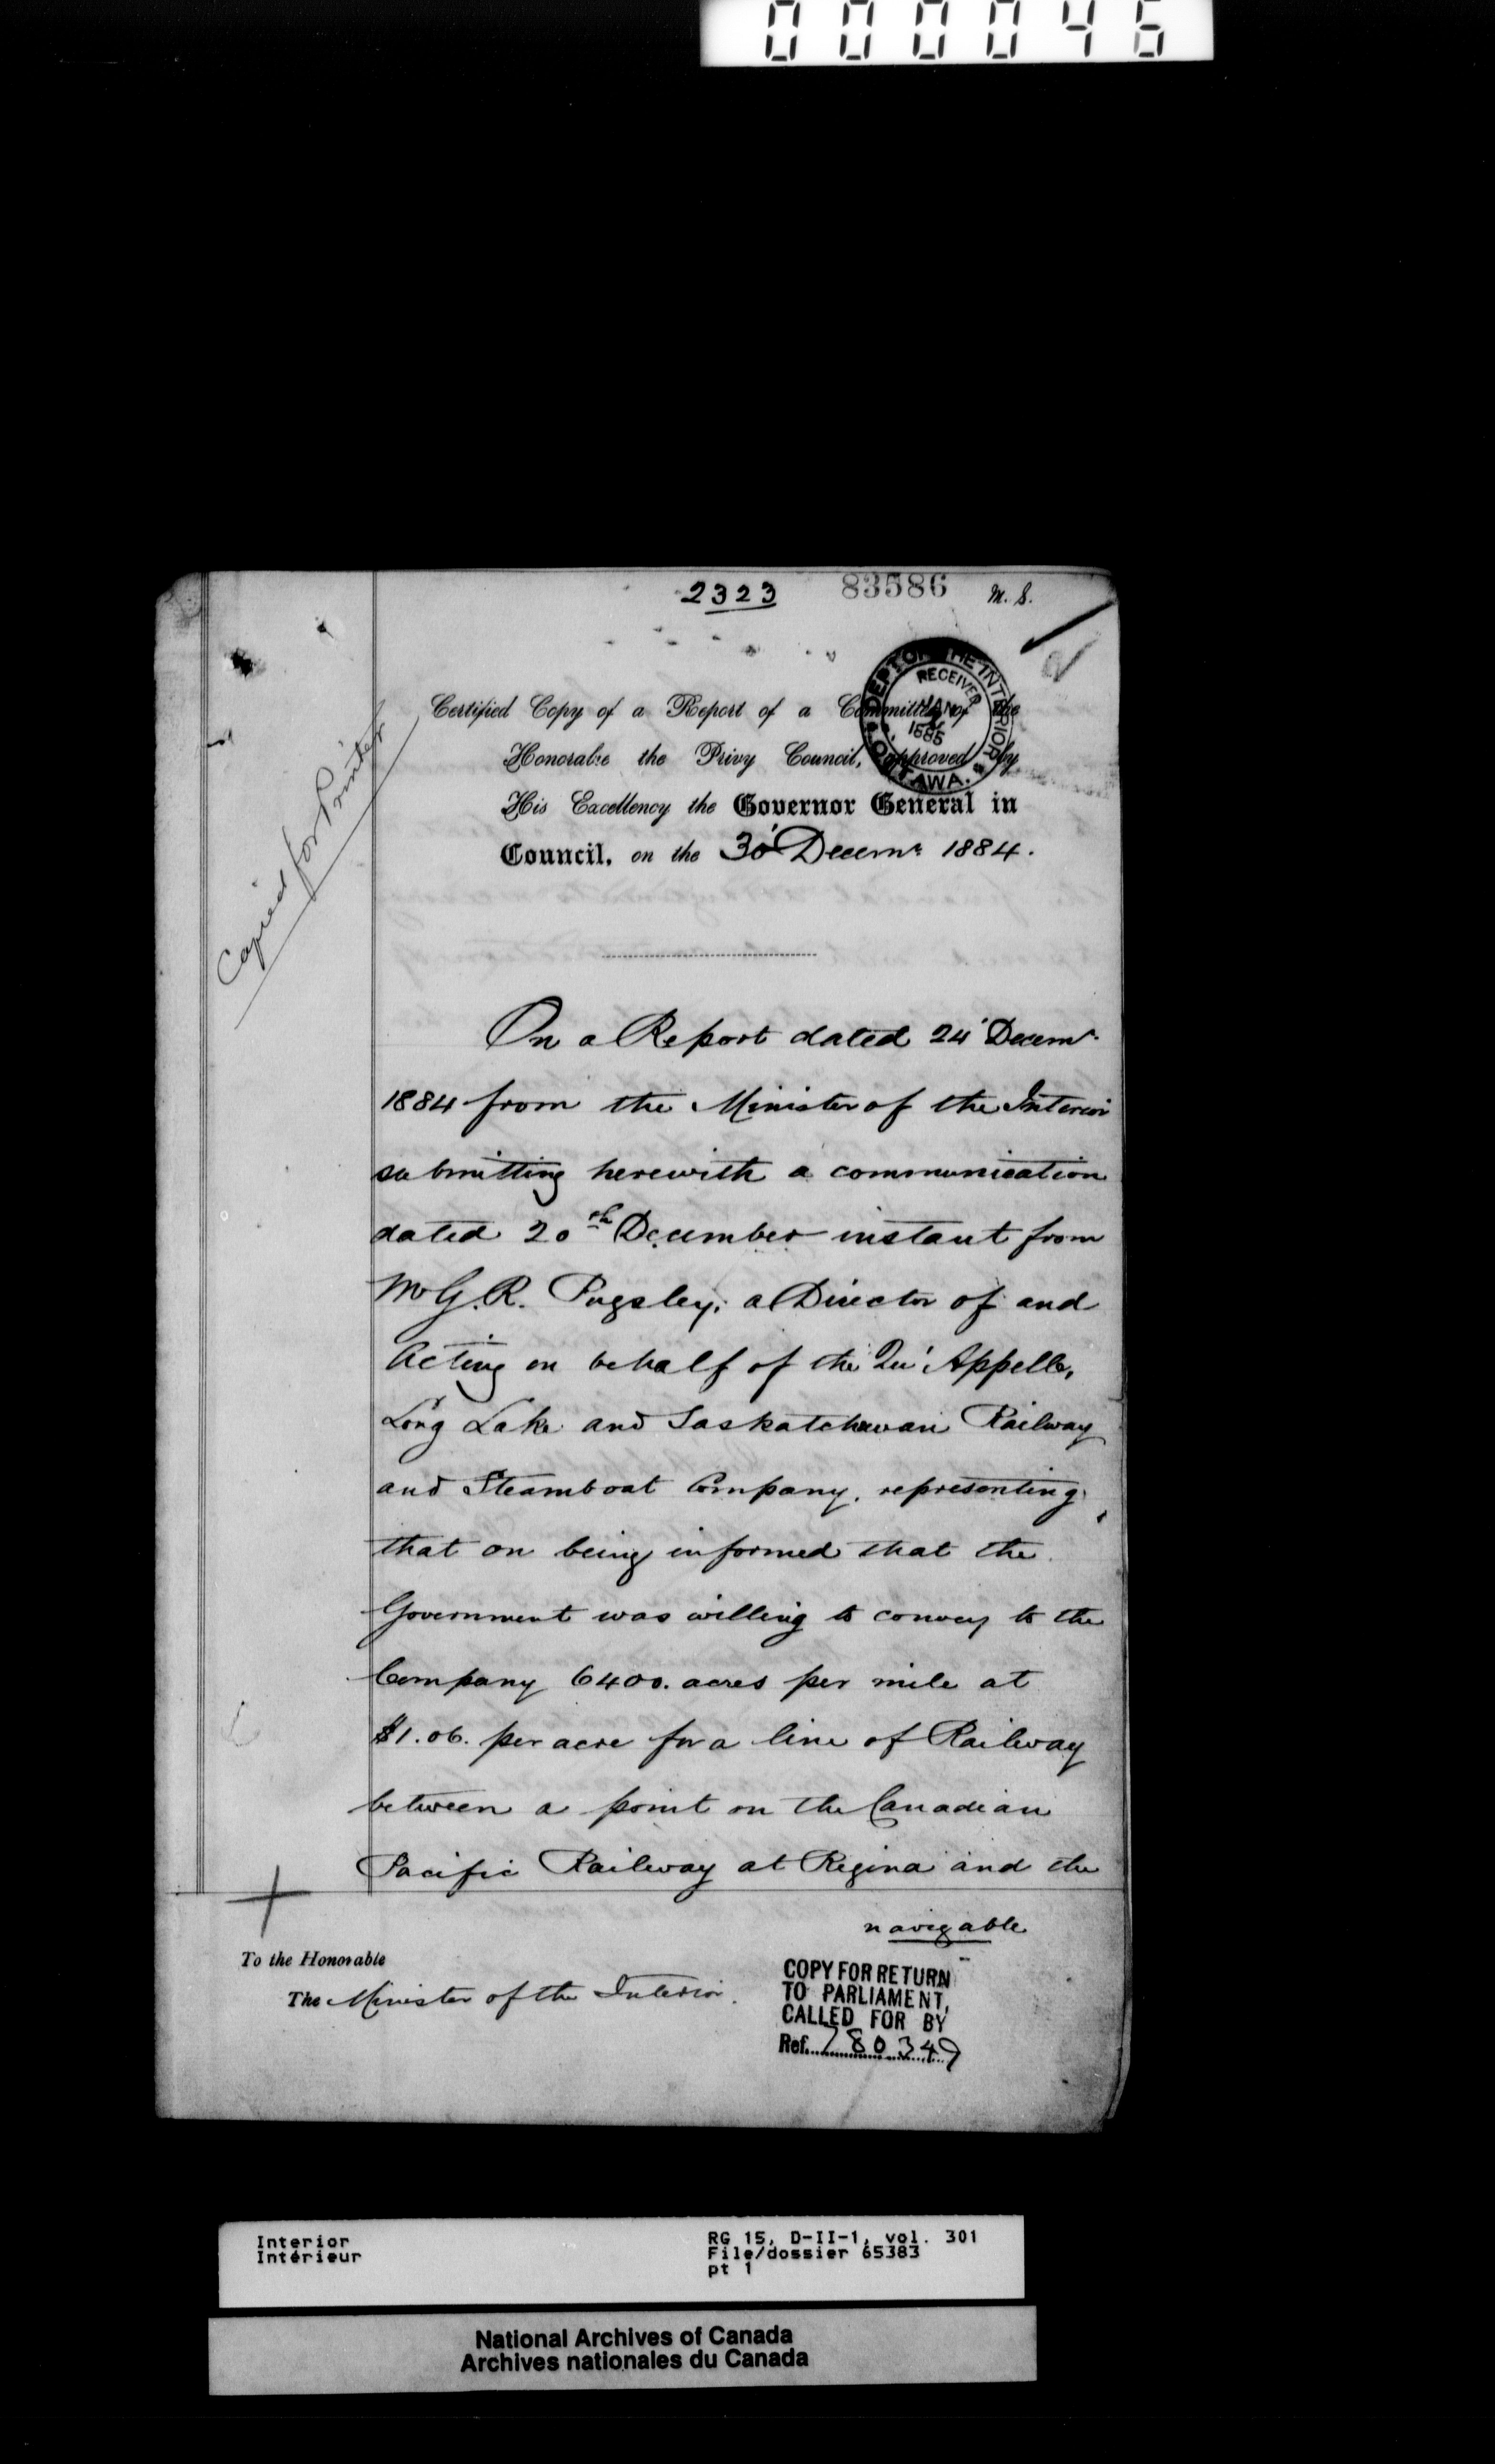 000046
2323 83586 M.S.
DEPT OF THE INTERIOR OTTAWA.
RECEIVED
JAN
1885
Certified Copy of a Report of a Committee of the
Honorable the Privy Council, approved by
His Excellency the Governor General in
Council, on the 30' Decemr 1884.
Copied for Printer
On a Report dated 24' Decemr
1884 from the Minister of the Interior
submitting herewith a communication
dated 20th December instant from
Mr G. R. Pugsley, a Director of and
Acting on behalf of the Qu'Appelle,
Long Lake and Saskatchewan Railway
and Steamboat Company, representing
that on being informed that the
Government was willing to convey to the
Company 6400. acres per mile at
$1.06. per acre for a line of Railway
between a point on the Canadian
Pacific Railway at Regina and the
navigable
To the Honorable
The Minister of the Interior.
COPY FOR RETURN
TO PARLIAMENT,
CALLED FOR BY
Ref. 780349
Interior
Intérieur
RG 15, D-II-1, vol. 301
File/dossier 65383
pt 1
National Archives of Canada
Archives nationales du Canada